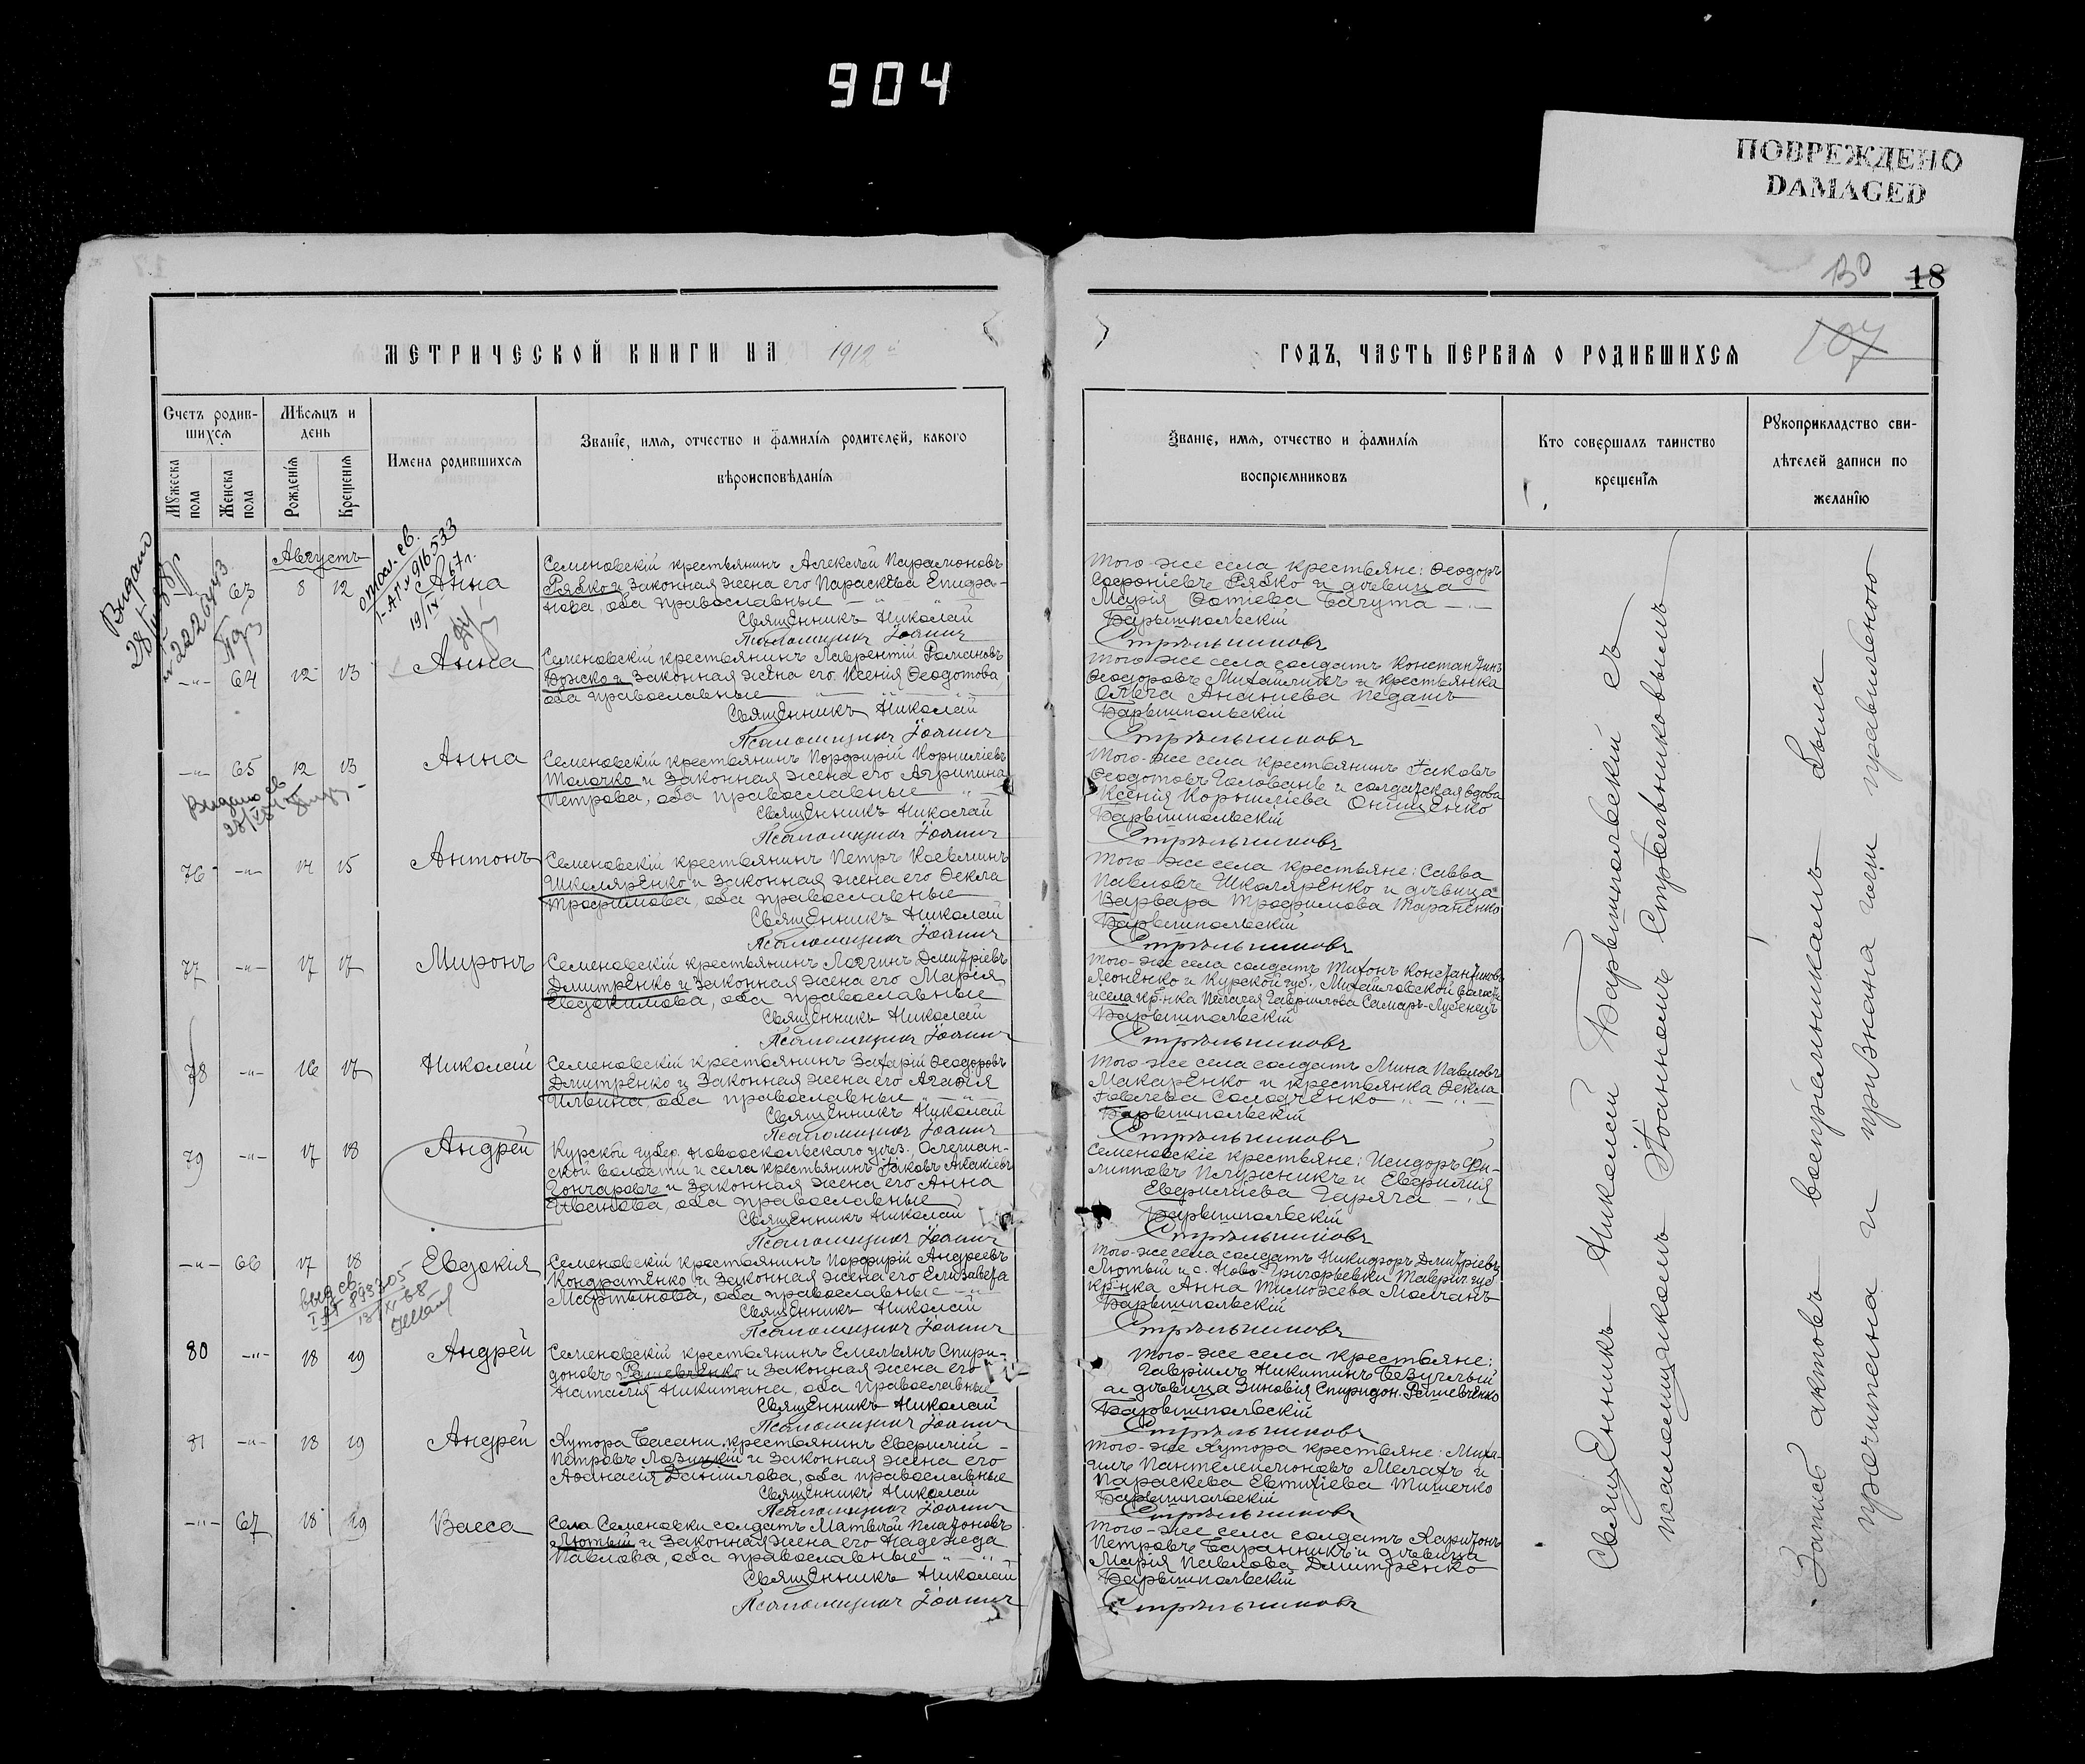 904
ПОВРЕЖДЕНО
DAMAGED
130
18
107
МЕТРИЧЕСКОЙ КНИГИ НА 1912 й
ГОДЪ, ЧАСТЬ ПЕРВАЯ О РОДИВШИХСЯ
Счетъ родившихся
Мужеска пола
Женска пола
Мѣсяцъ и день
Рожденія
Крещенія
Имена родившихся
Званіе, имя, отчество и фамилія родителей, какого
вѣроисповѣданія
Званіе, имя, отчество и фамилія
воспріемниковъ
Кто совершалъ таинство
крещенія
Рукоприкладство сви-
дѣтелей записи по
желанію
Видано
Августъ
63 8 12 Анна
Семеновскій крестьянинъ Алексѣй Парамоновъ
Рябко и законная жена его Параскева Епифа-
нова, оба православные
Священникъ Николай
Псаломщикъ Іоаннъ
Того-же села крестьяне: Ѳеодоръ
Софроніевъ Рябко и дѣвица
Марія Фотіева Багута
Барышпольскій
Стрѣльниковъ
-"- 64 12 13 Анна
Семеновскій крестьянинъ Лаврентій Романовъ
Божко и законная жена его Ксенія Ѳеодотова
оба православные
Священникъ Николай
Псаломщикъ Іоаннъ
Того-же села солдатъ Константинъ
Ѳеодоровъ Михайликъ и крестьянка
Ольга Ананіева Педашъ
Барышпольскій
Стрѣльниковъ
-"- 65 12 13 Анна
Видано св.
Семеновскій крестьянинъ Порфирій Корниліевъ
Толочко и законная жена его Агрипина
Петрова, оба православные
Священникъ Николай
Псаломщикъ Іоаннъ
Того-же села крестьянинъ Іаковъ
Ѳеодотовъ Головань и солдатская вдова
Ксенія Корниліева Онищенко
Барышпольскій
Стрѣльниковъ
76 -"- 14 15 Антонъ
Семеновскій крестьянинъ Петръ Косьминъ
Школяренко и законная жена его Ѳекла
Трофимова, оба православные
Священникъ Николай
Псаломщикъ Іоаннъ
Того-же села крестьяне: Савва
Павловъ Школяренко и дѣвица
Варвара Трофимова Тараненко
Барышпольскій
Стрѣльниковъ
77 -"- 17 17 Миронъ
Семеновскій крестьянинъ Логгинъ Дмитріевъ
Дмитренко и законная жена его Марія
Евдокимова, оба православные
Священникъ Николай
Псаломщикъ Іоаннъ
Того-же села солдатъ Тихонъ Константиновъ
Леоненко и Курской губ. Михайловской волости
и села кр-нка Пелагея Гаврилова Самаръ-Лубенецъ
Барышпольскій
Стрѣльниковъ
78 -"- 16 17 Николай
Семеновскій крестьянинъ Захарій Ѳеодоровъ
Дмитренко и законная жена его Агафія
Ильина, оба православные
Священникъ Николай
Псаломщикъ Іоаннъ
Того-же села солдатъ Мина Павловъ
Макаренко и крестьянка Ѳекла
Іовлева Солодченко
Барышпольскій
Стрѣльниковъ
79 -"- 17 18 Андрей
Курской губер. Новооскольскаго уѣз., Ольшан-
ской волости и села крестьянинъ Іаковъ Акакіевъ
Гончаровъ и законная жена его Анна
Иванова, оба православные
Священникъ Николай
Псаломщикъ Іоаннъ
Семеновскіе крестьяне: Исидоръ Фи-
липповъ Плужникъ и Евфимія
Евфиміева Гаряча
Барышпольскій
Стрѣльниковъ
-"- 66 17 18 Евдокія
Семеновскій крестьянинъ Порфирій Андреевъ
Кондратенко и законная жена его Елизавета
Мартынова, оба православные
Священникъ Николай
Псаломщикъ Іоаннъ
Того-же села солдатъ Никифоръ Дмитріевъ
Лютый и с. Ново-Григорьевки Таврич. губ.
кр-нка Анна Тимоѳеева Молчанъ
Барышпольскій
Стрѣльниковъ
80 -"- 18 19 Андрей
Семеновскій крестьянинъ Емельянъ Спири-
доновъ Рашевченко и законная жена его
Наталія Никитина, оба православные
Священникъ Николай
Псаломщикъ Іоаннъ
Того-же села крестьяне:
Гавріилъ Никитинъ Безуглый
и дѣвица Зиновія Спиридон. Рашевченко
Барышпольскій
Стрѣльниковъ
81 -"- 18 19 Андрей
Хутора Басани, крестьянинъ Евфимій
Петровъ Лозицкій и законная жена его
Афанасія Данилова, оба православные
Священникъ Николай
Псаломщикъ Іоаннъ
Того-же хутора крестьяне: Миха-
илъ Пантелеимоновъ Мелахъ и
Параскева Евтихіева Тишечко
Барышпольскій
Стрѣльниковъ
-"- 67 18 19 Васса
Села Семеновки солдатъ Матвѣй Платоновъ
Лютый и законная жена его Надежда
Павлова, оба православные
Священникъ Николай
Псаломщикъ Іоаннъ
Того-же села солдатъ Харитонъ
Петровъ Баранникъ и дѣвица
Марія Павлова Дмитренко
Барышпольскій
Стрѣльниковъ
Священникъ Николай Барышпольскій съ
псаломщикомъ Іоанномъ Стрѣльниковымъ
Запись актовъ воспріемникамъ была
прочитана и признана ими правильною